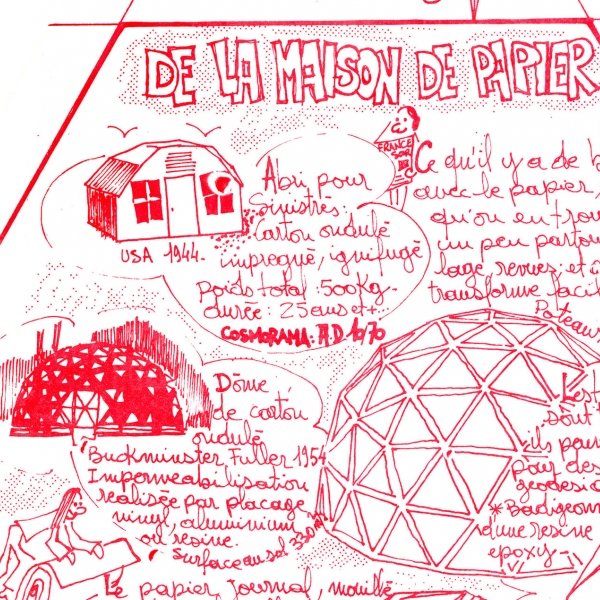 DE LA MAISON DE PAPIER
FRANCE
SOIR
USA 1944.
Abri pour
Sinistrés.
Carton ondulé
impregné, ignifugé
poids total: 500Kg.
durée: 25 ans et+.
COSMORAMA. A.D. 10/70
Ce qu'il y a de b
avec le papier,
qu'on en trou
un peu partou
lage, revues, et
transforme facil
Poteaux
Dôme
de carton
ondulé
Buckminster Fuller 1954
Imperméabilisation
réalisée par placage
vinyl, aluminium
ou résine.
Surface au sol 330 m²
Les
sont
ils peu
pour des
geodesi
*Badigeonn
d'une resine
epoxy.
Le papier journal, mouillé